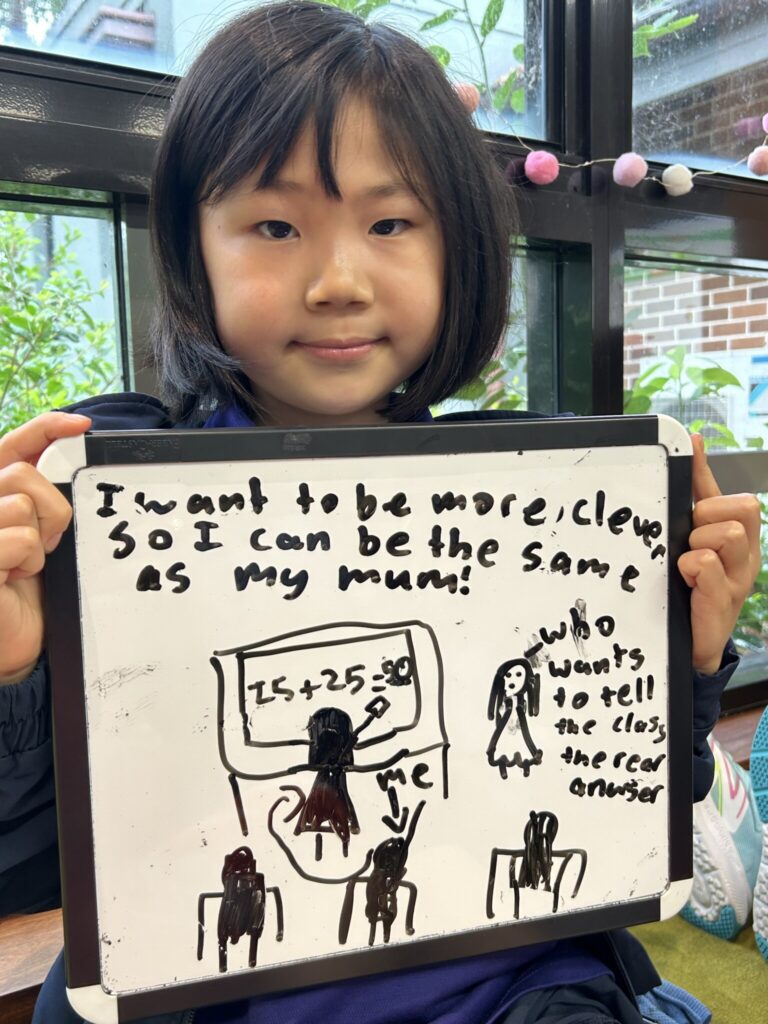 I want to be more, clever,
So I can be the same
as my mum!
15+25=50
who
wants
to tell
the class
the rear
anwser
me